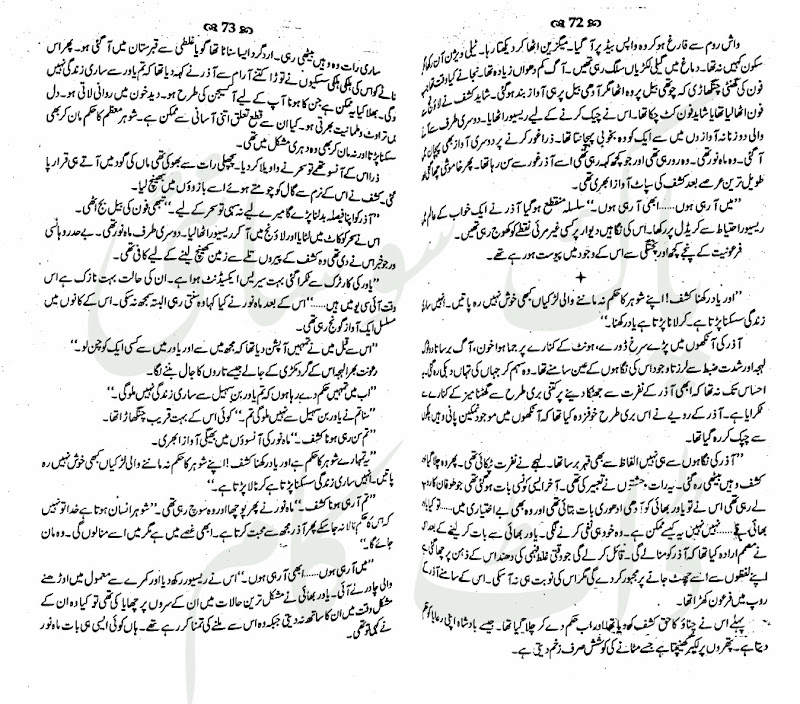 72
واش روم سے فارغ ہو کر وہ واپس بیڈ پر آ گیا۔ میگزین اٹھا کر دیکھتا رہا۔ ٹیلی ویژن آن
سکون کہیں نہ تھا۔ دماغ میں گیلی لکڑیاں سلگ رہی تھیں۔ آگ کم دھواں زیادہ تھا۔ نجانے کیا وقت تھا
فون کی گھنٹی چنگھاڑی کہ چوتھی بیل پر وہ اٹھا مگر آدھی بیل پر ہی آواز بند ہو گئی۔ شاید کشف نے
فون اٹھا لیا تھا یا شاید فون کٹ چکا تھا۔ اس نے چیک کرنے کے لیے ریسیور اٹھایا۔ دوسری طرف سے
والی دو زنانہ آوازوں میں سے ایک کو وہ بخوبی پہچانتا تھا۔ ذرا غور کرنے پر دوسری آواز بھی
آ گئی۔ وہ ماہ نور تھی۔ وہ رو رہی تھی اور جو کچھ کہہ رہی تھی اسے آذر غور سے سن رہا تھا۔ پھر خاموشی چھا گئی
طویل ترین عرصے بعد کشف کی سپاٹ آواز ابھری تھی۔
”میں آ رہی ہوں......ابھی آ رہی ہوں۔“ سلسلہ منقطع ہو گیا آذر نے ایک خواب کے عالم
ریسیور احتیاط سے کریڈل پر رکھا۔ اس کی نگاہیں دیوار پر کسی غیر مرئی نقطے کو کھوج رہی تھیں۔
فرعونیت کے پنجے کچھ اور پختگی سے اس کے وجود میں پیوست ہو رہے تھے۔
✦
”اور یاد رکھنا کشف! اپنے شوہر کا حکم نہ ماننے والی لڑکیاں کبھی خوش نہیں رہ پاتیں۔ انہیں ساری
زندگی سسکنا پڑتا ہے۔ کرلانا پڑتا ہے یاد رکھنا۔“
آذر کی آنکھوں میں پڑے سرخ ڈورے، ہونٹ کے کنارے پر جما ہوا خون، آگ برساتا
لہجہ اور شدت ضبط سے لرزتا وجود اس کی نگاہوں کے عین سامنے تھا۔ وہ سہم کر جہاں کی تہاں دبکی رہ گئی
احساس تک نہ تھا کہ ابھی آذر کے نفرت سے جھٹکا دینے پر کتنی بری طرح سے گھٹنا میز کے کنارے سے
ٹکرایا ہے۔ آذر کے رویے نے اس بری طرح خوفزدہ کیا تھا کہ آنکھوں میں موجود نمکین پانی وہیں
سے چپک کر رہ گیا تھا۔
”آذر کی نگاہوں سے ہی نہیں الفاظ سے بھی قہر برسا تھا۔ لہجے نے نفرت ٹپکائی تھی۔ پھر وہ چلا گیا اور
کشف وہیں بیٹھی رہ گئی۔ یہ رات وحشتوں نے تعبیر کی تھی۔ آخر ایسی کونسی بات ہو گئی تھی جو طوفان کا
لے رہی تھی اس نے تو یاور بھائی کو آدھی ادھوری بات بتائی تھی اور وہ بھی بے اختیاری میں......تو کیا
بھائی نے......نہیں نہیں یہ کیسے ممکن ہے۔ وہ خود ہی نفی کرنے لگی۔ یاور بھائی سے بات کر لینے کے بعد
نے مصمم ارادہ کیا تھا کہ آذر کو منا لے گی۔ قائل کر لے گی جو وقتی غلط فہمی کی دھند اس کے ذہن پر چھا گئی
اپنے لفظوں سے اسے چھٹ جانے پر مجبور کر دے گی مگر اس کی نوبت ہی نہ آ سکی۔ اس کے سامنے آذر کے
روپ میں فرعون کھڑا تھا۔
پہلے اس نے چناؤ کا حق کشف کو دیا تھا اور اب حکم دے کر چلا گیا تھا۔ جیسے بادشاہ اپنی رعایا کو حکم
دیتا ہے۔ پتھروں پر لکیر کھینچتا ہے جسے مٹانے کی کوشش صرف زخم دیتی ہے۔
73
ساری رات وہ وہیں بیٹھی رہی۔ اردگرد ایسا سناٹا تھا گویا غلطی سے قبرستان میں آ گئی ہو۔ پھر اس
سناٹے کو اس کی ہلکی ہلکی سسکیوں نے توڑا کتنے آرام سے آذر نے کہہ دیا تھا کہ تم یاور سے ساری زندگی نہیں
ملو گی۔ بھلا کیا یہ ممکن ہے جن کا ہونا آپ کے لیے آکسیجن کی طرح ہو۔ دید خون میں روانی لاتی ہو۔ دل
میں تراوٹ و طمانیت بھرتی ہو۔ کیا ان سے قطع تعلق اتنی آسانی سے ممکن ہے۔ شوہر معظم کا حکم مان کر بھی
سسکنا پڑتا اور نہ مان کر بھی وہ دہری مشکل میں تھی۔
ذرا اس کے آنسو تھمے تو سحر نے واویلا کر دیا۔ پچھلی رات سے بھوکی تھی ماں کی گود میں آتے ہی قرار پا
گئی۔ کشف نے اس کے نرم سے گال کو چومتے ہوئے اسے بازوؤں میں بھینچ لیا۔
”آذر کو اپنا فیصلہ بدلنا پڑے گا میرے لیے نہ سہی تو سحر کے لیے۔“ تبھی فون کی بیل بج اٹھی۔
اس نے سحر کو کاٹ میں لٹایا اور لاؤنج میں آ کر ریسیور اٹھا لیا۔ دوسری طرف ماہ نور تھی۔ بے حد رو ہانسی
اور جو خبر اس نے دی تھی وہ کشف کے پیروں تلے سے زمین کھینچ لینے کے لیے کافی تھی۔
”یاور کی کار ٹرک سے ٹکرا گئی بہت سیریس ایکسیڈنٹ ہوا ہے۔ ان کی حالت بہت نازک ہے اس
وقت آئی سی یو میں ہیں......“ اس کے بعد ماہ نور نے کیا کہا وہ سنتی رہی البتہ سمجھ نہ سکی۔ اس کے کانوں میں
مسلسل ایک آواز گونج رہی تھی۔
”اس سے قبل میں نے تمہیں آپشن دیا تھا کہ مجھ میں سے اور یاور میں سے کسی ایک کو چن لو۔“
رعونت بھرا لہجہ اس کے گرد مکڑی کے جالے جیسے تاروں کا جال بننے لگا۔
”اب میں تمہیں حکم دے رہا ہوں کہ تم یاور بن سہیل سے ساری زندگی نہیں ملو گی۔“
”سنا تم نے یاور بن سہیل سے نہیں ملو گی تم۔“ کوئی اس کے بہت قریب چنگھاڑا تھا۔
”تم سن رہی ہونا کشف۔“ ماہ نور کی آنسوؤں میں بھیگی آواز ابھری۔
”یہ تمہارے شوہر کا حکم ہے اور یاد رکھنا کشف! اپنے شوہر کا حکم نہ ماننے والی لڑکیاں کبھی خوش نہیں رہ
پاتیں۔ انہیں ساری زندگی سسکنا پڑتا ہے کرلانا پڑتا ہے۔“
”تم آ رہی ہونا کشف۔“ ماہ نور نے پھر پوچھا اور وہ سوچ رہی تھی۔ ”شوہر انسان ہوتا ہے خدا تو نہیں
کہ اس کا حکم ٹالا نہ جا سکے پھر آذر مجھ سے محبت کرتا ہے۔ ابھی غصے میں ہے مگر میں اسے منا لوں گی۔ وہ مان
جائے گا۔“
”میں آ رہی ہوں......ابھی آ رہی ہوں۔“ اس نے ریسیور رکھ دیا اور کمرے سے معمول میں اوڑھنے
والی چادر لے آئی۔ یاور بھائی نے مشکل ترین حالات میں ان کے سروں پر چھایا کی تھی تو کیا وہ ان کے
مشکل وقت میں ان کا ساتھ نہ دیتی جبکہ وہ اس سے ملنے کی تمنا کر رہے تھے۔ ہاں کوئی ایسی ہی بات ماہ نور
نے کہی تو تھی۔